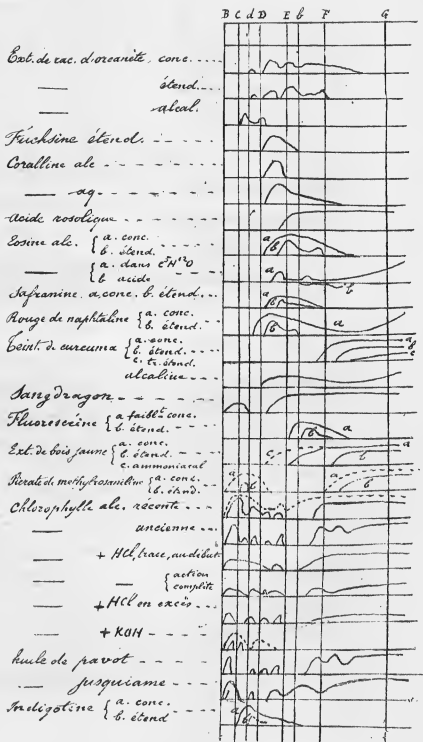 B C d D E b F G
Ext. de rac. d'orcanète, conc.
— étend.
— alcal.
Fuchsine étend.
Coralline alc
— aq
Acide rosolique
Eosine alc. { a. conc.
b. étend.
— { a. dans C⁵H¹²O
b acide
Safranine a. conc. b. étend...
Rouge de naphtaline { a. conc.
b. étend.
Teint. de curcuma { a. conc.
b. étend.
c. tr. étend.
alcaline
Sangdragon
Fluorescéine { a faiblt conc.
b. étend.
Ext. de bois jaune { a. conc.
b. étend.
c. ammoniacal
Picrate de méthylrosaniline { a. conc.
b. étend.
Chlorophylle alc. récente
— ancienne
— + HCl, trace, au début
— — { action
complète
— + HCl en excès
— + KOH
huile de pavot
— jusquiame
Indigotine { a. conc.
b. étend